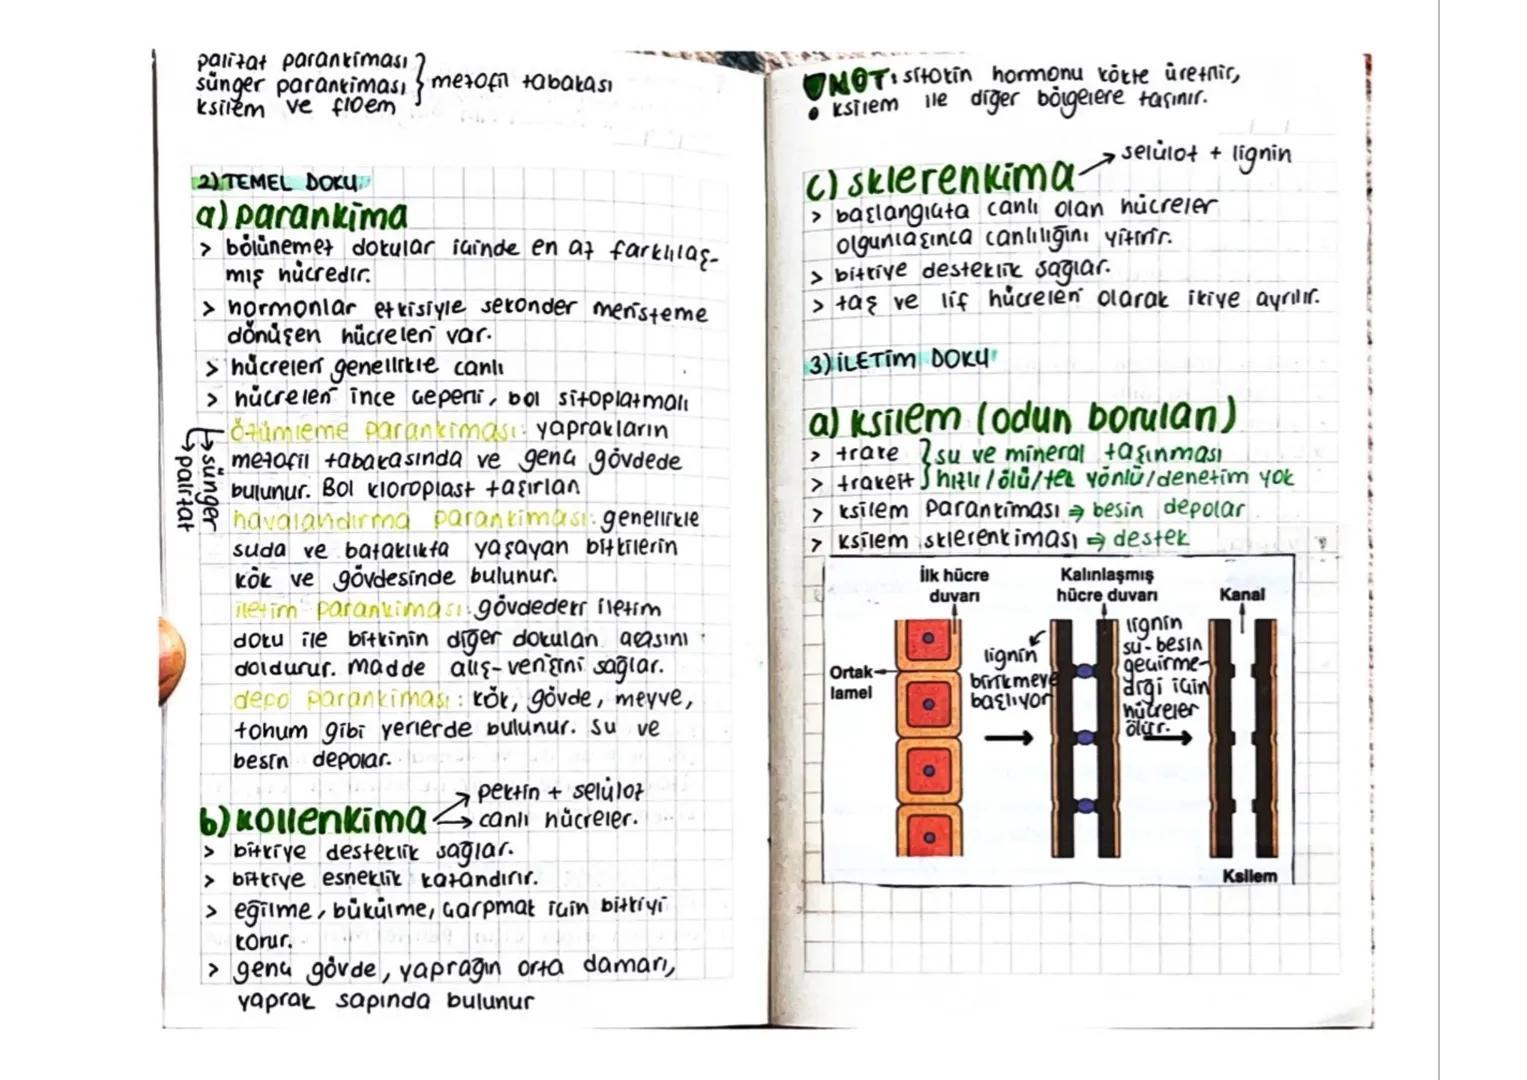 palizat parankiması
sünger parankiması } mezofil tabakası
ksilem ve floem
2) TEMEL DOKU
a) parankima
> bölünemez dokular içinde en az farklılaş-
mış hücredir.
> hormonlar etkisiyle sekonder meristeme
dönüşen hücreleri var.
> hücreleri genellikle canlı
> hücreleri ince çeperli, bol sitoplazmalı
özümleme parankiması: yaprakların
mezofil tabakasında ve genç gövdede
bulunur. Bol kloroplast taşırlar
→ sünger
→ palizat
havalandırma parankiması: genellikle
suda ve bataklıkta yaşayan bitkilerin
kök ve gövdesinde bulunur.
iletim parankiması: gövdedeki iletim
doku ile bitkinin diğer dokuları arasını
doldurur. madde alış-verişini sağlar.
depo parankiması: kök, gövde, meyve,
tohum gibi yerlerde bulunur. su ve
besin depolar.
→ pektin + selüloz
b) kollenkima → canlı hücreler.
> bitkiye desteklik sağlar.
> bitkiye esneklik kazandırır.
> eğilme, bükülme, çarpmak için bitkiyi
korur.
> genç gövde, yaprağın orta damarı,
yaprak sapında bulunur
NOT: sitokin hormonu kökte üretilir,
ksilem ile diğer bölgelere taşınır.
→ selüloz + lignin
c) sklerenkima
> başlangıçta canlı olan hücreler
olgunlaşınca canlılığını yitirir.
> bitkiye desteklik sağlar.
> taş ve lif hücreleri olarak ikiye ayrılır.
3) İLETİM DOKU
a) ksilem (odun boruları)
> trake } su ve mineral taşınması
> trakeit } hızlı/ölü/tek yönlü/denetim yok
> ksilem parankiması ⇒ besin depolar
> ksilem sklerenkiması ⇒ destek
İlk hücre
duvarı
Kalınlaşmış
hücre duvarı
Kanal
Ortak
lamel
lignin
birikmeye
başlıyor
lignin
su-besin
geçirme-
diği için
hücreler
ölür.
Ksilem